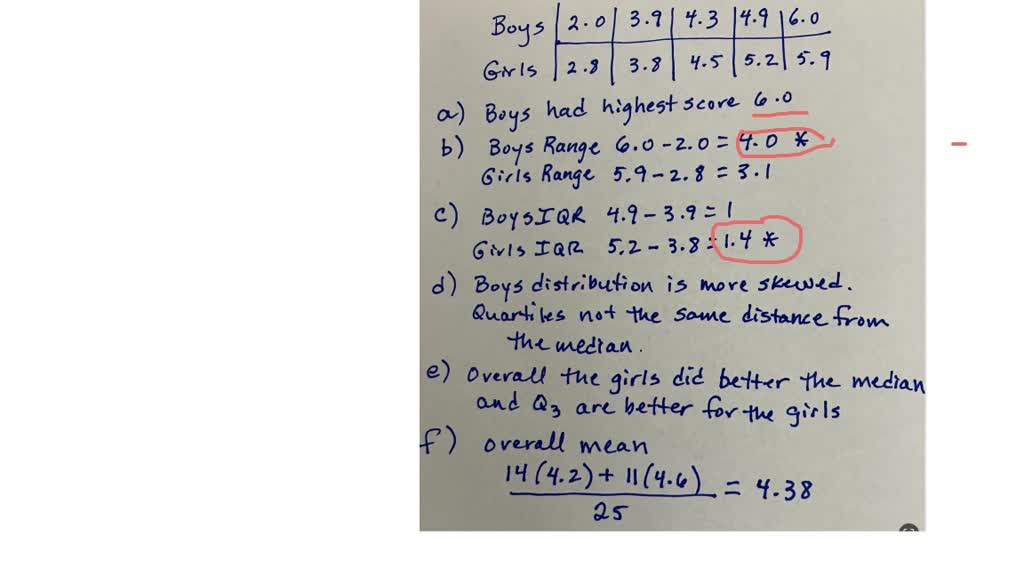 Boys 2.0 3.9 4.3 4.9 6.0
Girls 2.8 3.8 4.5 5.2 5.9
a) Boys had highest score 6.0
b) Boys Range 6.0 - 2.0 = 4.0 *
Girls Range 5.9 - 2.8 = 3.1
c) Boys IQR 4.9 - 3.9 = 1
Girls IQR 5.2 - 3.8 = 1.4 *
d) Boys distribution is more skewed.
Quartiles not the same distance from
the median.
e) Overall the girls did better the median
and Q3 are better for the girls
f) overall mean
14(4.2) + 11(4.6) = 4.38
25